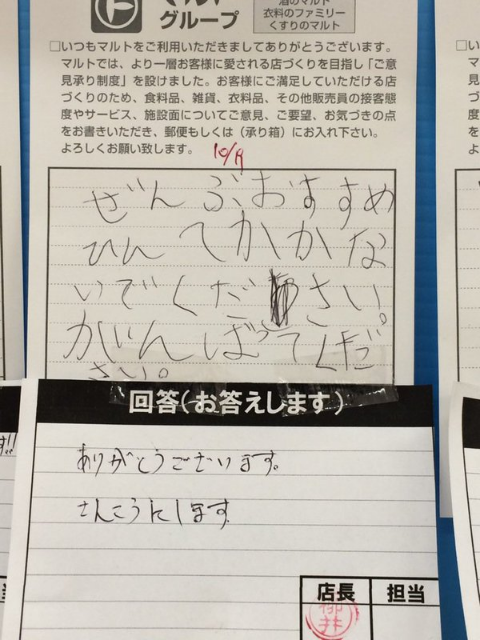 グループ
酒のマルト
衣料のファミリー
くすりのマルト
□いつもマルトをご利用いただきましてありがとうございます。
マルトでは、より一層お客様に愛される店づくりを目指し「ご意
見承り制度」を設けました。お客様にご満足していただける店
づくりのため、食料品、雑貨、衣料品、その他販売員の接客態
度やサービス、施設面についてご意見、ご要望、お気づきの点
をお書きいただき、郵便もしくは（承り箱）にお入れ下さい。
よろしくお願い致します。
10/19
ぜんぶおすすめ
ひんてかかな
いでください。
がんばってくだ
さい。
回答（お答えします）
ありがとうございます。
さんこうにします
店長 担当
柳井